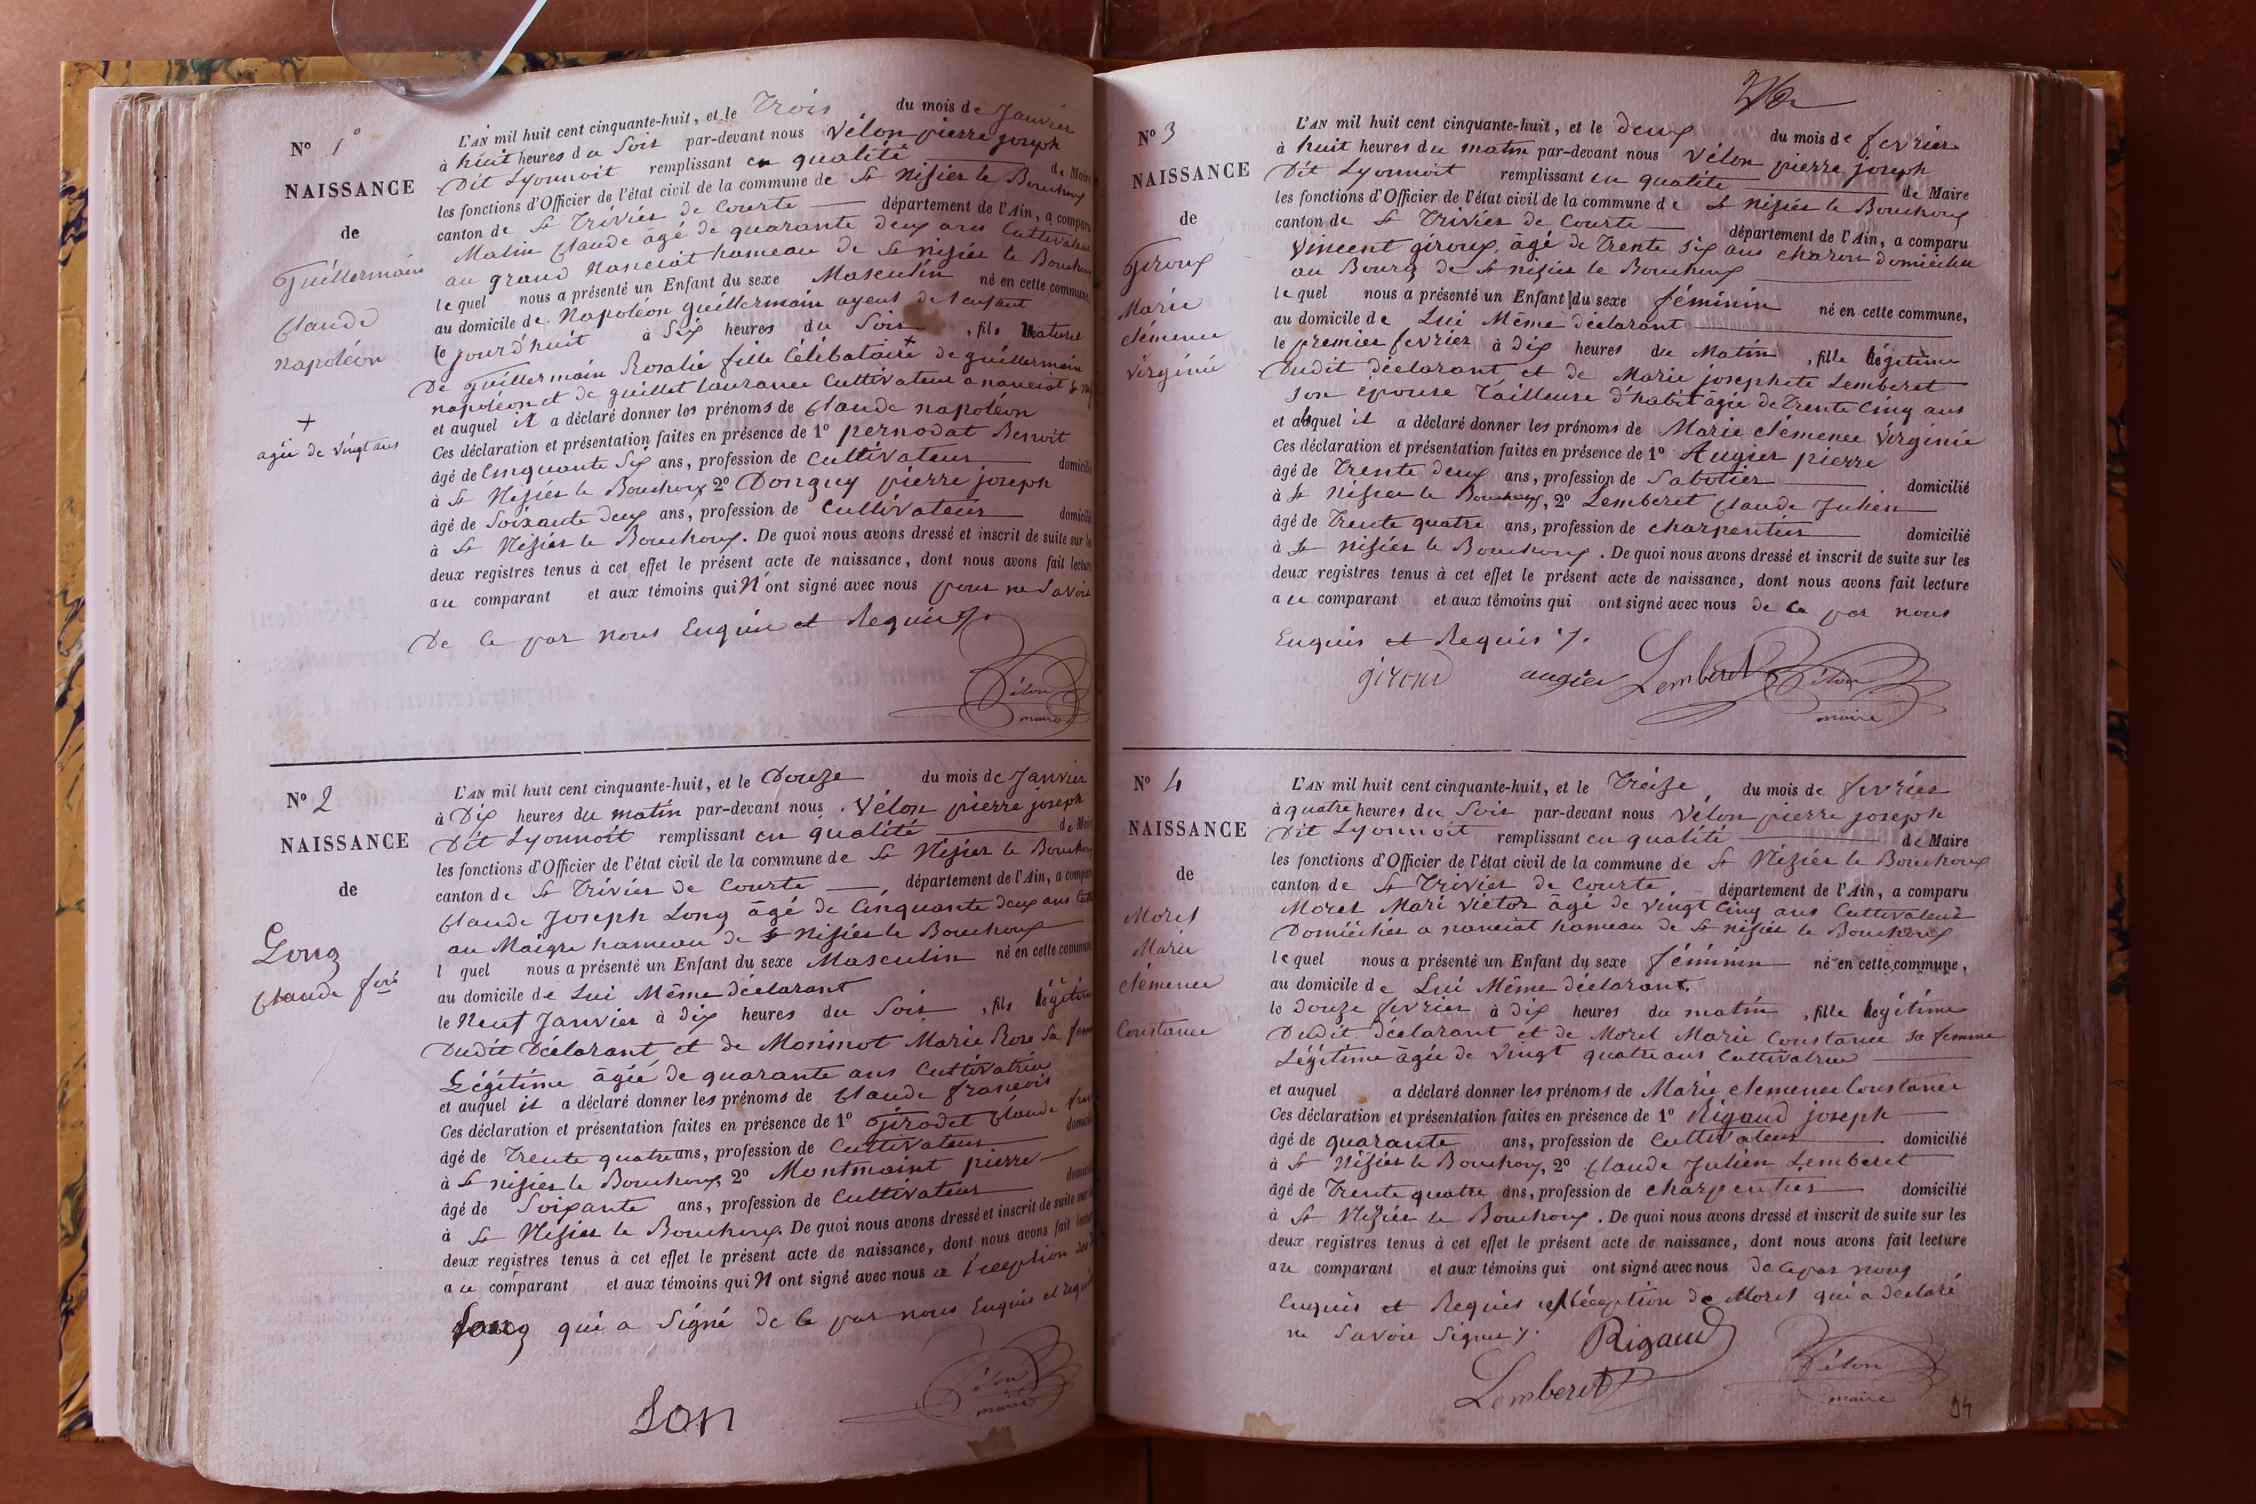 N° 1°
NAISSANCE
de
Guillermain
Claude
napoléon
+
agée de vingt ans
L'AN mil huit cent cinquante-huit, et le Trois du mois de Janvier
à huit heures du Soir par-devant nous Vélon pierre joseph
Dit Lyonnoit remplissant en qualité de Maire
les fonctions d'Officier de l'état civil de la commune de St Nisier le Bouchoux
canton de St Trivier de Courte département de l'Ain, a comparu
Matin Claude âgé de quarante deux ans Cultivateur
au grand Nanciat hameau de St nisier le Bouchoux
lequel nous a présenté un Enfant du sexe Masculin né en cette commune,
au domicile de Napoléon guillermain ayeul de l'enfant
le jourd'huit à Six heures du Soir, fils Naturel
De guillermain Rosalie fille Célibataire + de guillermain
napoléon et de guillet laurance Cultivateur a nanciat St
et auquel il a déclaré donner les prénoms de Claude napoléon
Ces déclaration et présentation faites en présence de 1° pernodat Benoit
âgé de Cinquante Six ans, profession de Cultivateur domicilié
à St Nizier le Bouchoux 2° Donguy pierre joseph
âgé de Soixante deux ans, profession de Cultivateur domicilié
à St Nizier le Bouchoux. De quoi nous avons dressé et inscrit de suite sur les
deux registres tenus à cet effet le présent acte de naissance, dont nous avons fait lecture
au comparant et aux témoins qui N'ont signé avec nous pour ne Savoir
De Ce par nous Enquis et Requis ./.
Vélon
maire
N° 2
NAISSANCE
de
Long
Claude fçois
L'AN mil huit cent cinquante-huit, et le Douze du mois de Janvier
à Dix heures du matin par-devant nous Vélon pierre joseph
Dit Lyonnoit remplissant en qualité de Maire
les fonctions d'Officier de l'état civil de la commune de St Nizier le Bouchoux
canton de St Trivier de Courte, département de l'Ain, a comparu
Claude Joseph Long âgé de Cinquante deux ans Cult
au Maigre hameau de St Nizier le Bouchoux
l quel nous a présenté un Enfant du sexe Masculin né en cette commune
au domicile de Lui Même déclarant
le Neuf Janvier à dix heures du Soir, fils légitime
Dudit Déclarant et de Monnot Marie Rose Sa femme
Légitime âgée de quarante ans Cultivatrice
et auquel il a déclaré donner les prénoms de Claude françois
Ces déclaration et présentation faites en présence de 1° Girodet Claude
âgé de Trente quatre ans, profession de Cultivateur domicilié
à St nizier le Bouchoux, 2° Montmaint pierre
âgé de Soixante ans, profession de Cultivateur domicilié
à St Nizier le Bouchoux. De quoi nous avons dressé et inscrit de suite sur les
deux registres tenus à cet effet le présent acte de naissance, dont nous avons fait lecture
au comparant et aux témoins qui N ont signé avec nous a l'exception
Long qui a Signé de Ce par nous Enquis et requis
Lon
Vélon
maire
N° 3
NAISSANCE
de
Giroux
Marie
clémence
Virginie
L'AN mil huit cent cinquante-huit, et le deux du mois de fevrier
à huit heures du matin par-devant nous Vélon pierre joseph
Dit Lyonnoit remplissant en qualité de Maire
les fonctions d'Officier de l'état civil de la commune de St Nisier le Bouchoux
canton de St Trivier de Courte département de l'Ain, a comparu
Vincent giroux, âgé de Trente Six ans charon domicilié
au Bourg de St nisier le Bouchoux
lequel nous a présenté un Enfant du sexe féminin né en cette commune,
au domicile de Lui Même déclarant
le premier fevrier à Dix heures du Matin, fille légitime
Dudit déclarant et de Marie josephete Lemberet
Son épouse Tailleuse d'habit âgée de Trente Cinq ans
et auquel il a déclaré donner les prénoms de Marie clémence Virginie
Ces déclaration et présentation faites en présence de 1° Augier pierre
âgé de Trente deux ans, profession de Sabotier domicilié
à St Nisier le Bouchoux, 2° Lemberet Claude Julien
âgé de Trente quatre ans, profession de charpentier domicilié
à St nisier le Bouchoux. De quoi nous avons dressé et inscrit de suite sur les
deux registres tenus à cet effet le présent acte de naissance, dont nous avons fait lecture
au comparant et aux témoins qui ont signé avec nous de Ce par nous
Enquis et Requis ./.
giroud augier Lemberet Vélon
maire
N° 4
NAISSANCE
de
Morel
Marie
clémence
Constance
L'AN mil huit cent cinquante-huit, et le Treize, du mois de fevrier
à quatre heures du Soir par-devant nous Vélon pierre joseph
Dit Lyonnoit remplissant en qualité de Maire
les fonctions d'Officier de l'état civil de la commune de St Nizier le Bouchoux
canton de St Trivier de Courte, département de l'Ain, a comparu
Morel Mari Victor âgé de vingt Cinq ans Cultivateur
Domicilié a nanciat hameau de St nisier le Bouchoux
lequel nous a présenté un Enfant du sexe féminin né en cette commune,
au domicile de Lui Même déclarant.
le Douze fevrier à dix heures du matin, fille légitime
Dudit déclarant et de Morel Marie Constance Sa femme
Légitime âgée de Vingt quatre ans Cultivatrice
et auquel a déclaré donner les prénoms de Marie clemence Constance
Ces déclaration et présentation faites en présence de 1° Rigaud joseph
âgé de quarante ans, profession de Cultivateur domicilié
à St Nisier le Bouchoux, 2° Claude Julien Lemberet
âgé de Trente quatre ans, profession de charpentier domicilié
à St Nizier le Bouchoux. De quoi nous avons dressé et inscrit de suite sur les
deux registres tenus à cet effet le présent acte de naissance, dont nous avons fait lecture
au comparant et aux témoins qui ont signé avec nous de Ce par nous
Enquis et Requis a l'éxception de Morel qui a declaré
ne Savoir Signer ./.
Rigaud
Lemberet
Vélon
maire
94